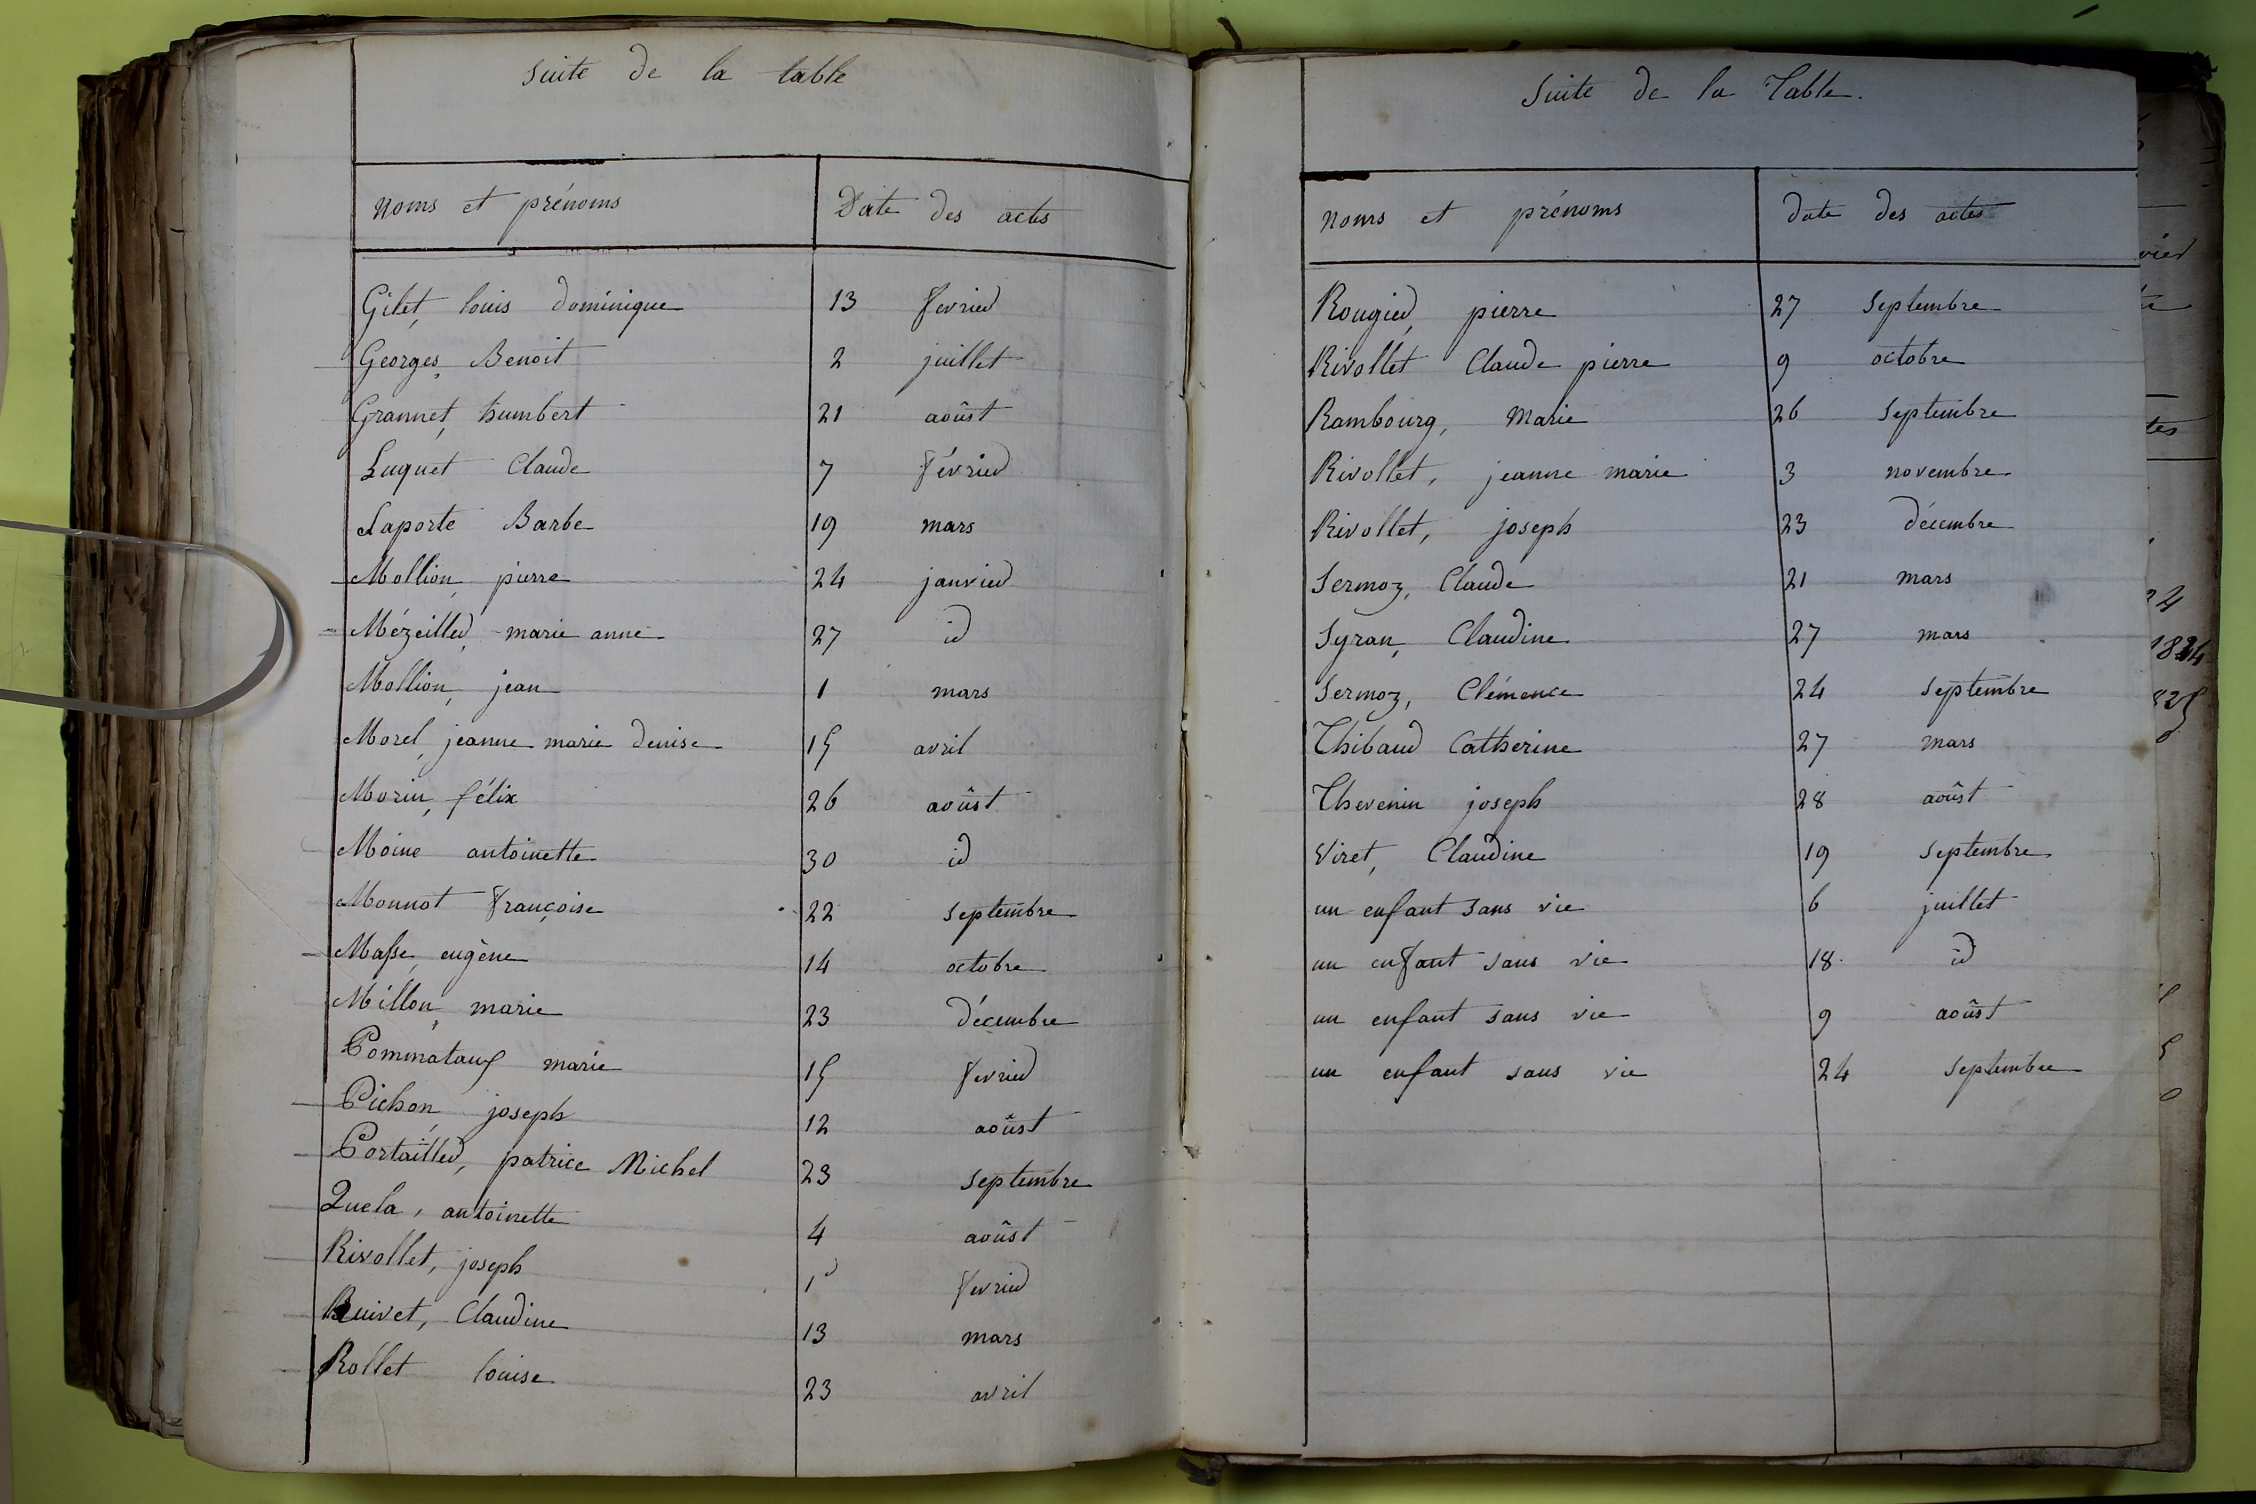 Suite de la table
noms et prénoms Date des actes
Gilet, louis dominique 13 fevrier
Georges, Benoit 2 juillet
Grannet, humbert 21 aoûst
Luquet Claude 7 février
Laporte Barbe 19 mars
Mollion, pierre 24 janvier
Mézeiller, marie anne 27 id
Mollion, jean 1 mars
Morel, jeanne marie denise 15 avril
Morin, félix 26 aoûst
Moine antoinette 30 id
Monnot françoise 22 septembre
Masse, eugène 14 octobre
Millon, marie 23 décembre
marie 15 fevrier
Pichon, joseph 12 aoûst
Portailler, patrice Michel 23 septembre
Quela, antoinette 4 aoûst
Rivollet, joseph 1er fevrier
Ruivet, Claudine 13 mars
Rollet louise 23 avril
Suite de la Table.
noms et prénoms date des actes
Rougier, pierre 27 septembre
Rivollet Claude pierre 9 octobre
Rambourg, Marie 26 septembre
Rivollet, jeanne marie 3 novembre
Rivollet, joseph 23 décembre
Sermoz, Claude 21 mars
Syran, Claudine 27 mars
Sermoz, Clémence 24 septembre
Thibaud Catherine 27 mars
Thevenin joseph 28 aoûst
Viret, Claudine 19 septembre
un enfant sans vie 6 juillet
un enfant sans vie 18 id
un enfant sans vie 9 aoûst
un enfant sans vie 24 septembre